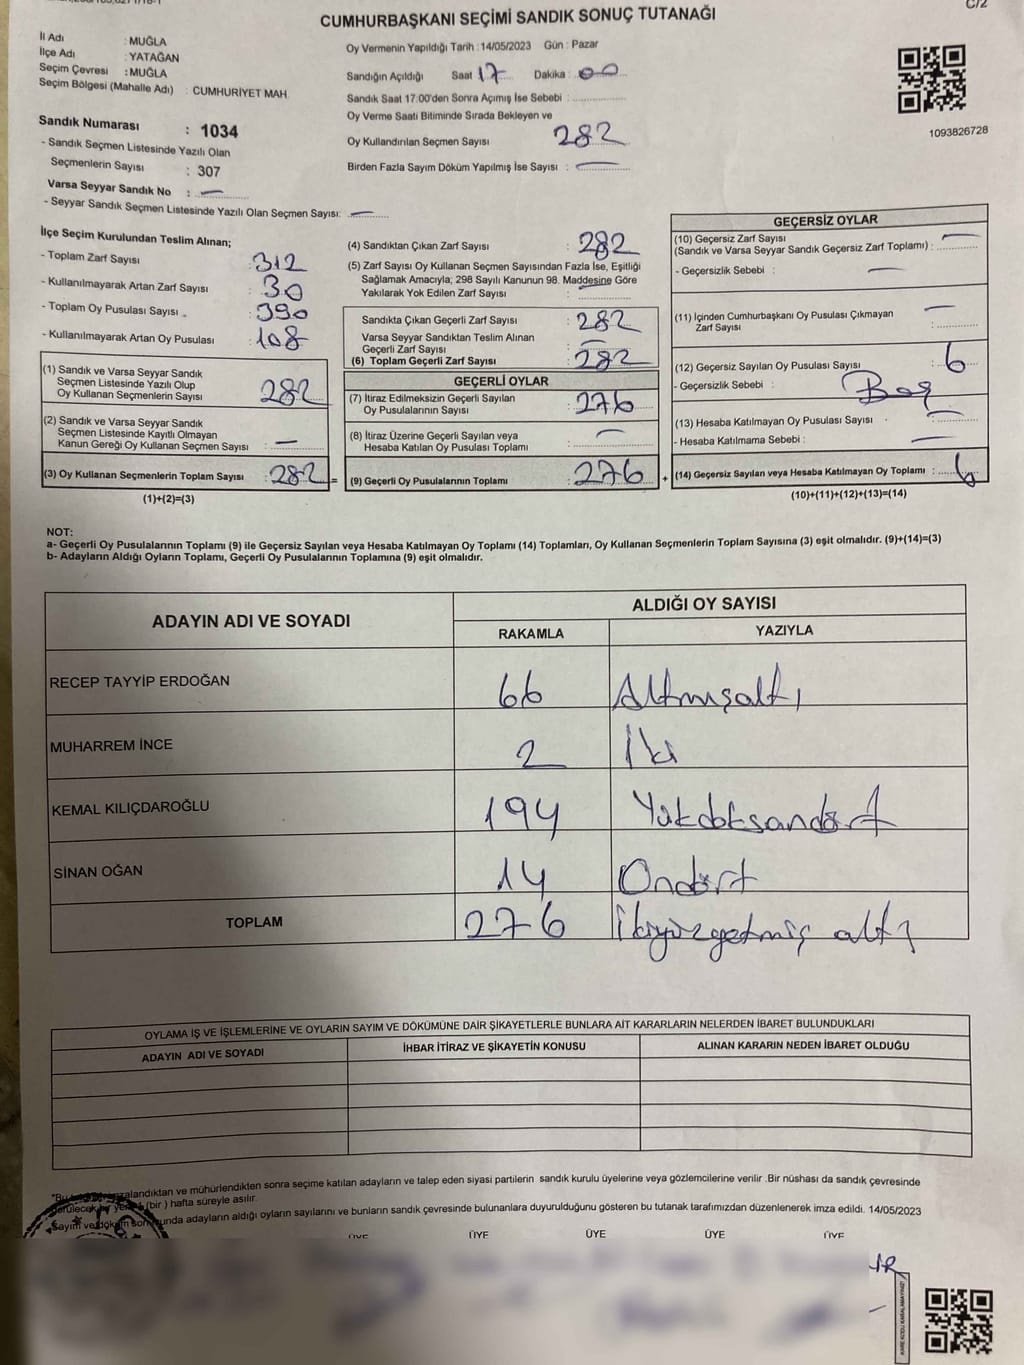 C/2
CUMHURBAŞKANI SEÇİMİ SANDIK SONUÇ TUTANAĞI
İl Adı : MUĞLA
İlçe Adı : YATAĞAN
Seçim Çevresi : MUĞLA
Seçim Bölgesi (Mahalle Adı) : CUMHURİYET MAH.
Sandık Numarası : 1034
- Sandık Seçmen Listesinde Yazılı Olan
Seçmenlerin Sayısı : 307
Varsa Seyyar Sandık No : —
- Seyyar Sandık Seçmen Listesinde Yazılı Olan Seçmen Sayısı: —
Oy Vermenin Yapıldığı Tarih : 14/05/2023 Gün : Pazar
Sandığın Açıldığı Saat 17 Dakika : 00
Sandık Saat 17:00'den Sonra Açımış İse Sebebi :
Oy Verme Saati Bitiminde Sırada Bekleyen ve
Oy Kullandırılan Seçmen Sayısı 282
Birden Fazla Sayım Döküm Yapılmış İse Sayısı : —
1093826728
İlçe Seçim Kurulundan Teslim Alınan;
- Toplam Zarf Sayısı : 312
- Kullanılmayarak Artan Zarf Sayısı : 30
- Toplam Oy Pusulası Sayısı : 390
- Kullanılmayarak Artan Oy Pusulası : 108
(1) Sandık ve Varsa Seyyar Sandık
Seçmen Listesinde Yazılı Olup
Oy Kullanan Seçmenlerin Sayısı 282
(2) Sandık ve Varsa Seyyar Sandık
Seçmen Listesinde Kayıtlı Olmayan
Kanun Gereği Oy Kullanan Seçmen Sayısı : —
(3) Oy Kullanan Seçmenlerin Toplam Sayısı : 282 =
(1)+(2)=(3)
(4) Sandıktan Çıkan Zarf Sayısı : 282
(5) Zarf Sayısı Oy Kullanan Seçmen Sayısından Fazla İse, Eşitliği
Sağlamak Amacıyla; 298 Sayılı Kanunun 98. Maddesine Göre
Yakılarak Yok Edilen Zarf Sayısı : —
Sandıkta Çıkan Geçerli Zarf Sayısı : 282
Varsa Seyyar Sandıktan Teslim Alınan
Geçerli Zarf Sayısı : —
(6) Toplam Geçerli Zarf Sayısı : 282
GEÇERLİ OYLAR
(7) İtiraz Edilmeksizin Geçerli Sayılan
Oy Pusulalarının Sayısı : 276
(8) İtiraz Üzerine Geçerli Sayılan veya
Hesaba Katılan Oy Pusulası Toplamı : —
(9) Geçerli Oy Pusulalarının Toplamı : 276 +
GEÇERSİZ OYLAR
(10) Geçersiz Zarf Sayısı
(Sandık ve Varsa Seyyar Sandık Geçersiz Zarf Toplamı) : —
- Geçersizlik Sebebi : —
(11) İçinden Cumhurbaşkanı Oy Pusulası Çıkmayan
Zarf Sayısı : —
(12) Geçersiz Sayılan Oy Pusulası Sayısı : 6
- Geçersizlik Sebebi : Boş
(13) Hesaba Katılmayan Oy Pusulası Sayısı : —
- Hesaba Katılmama Sebebi : —
(14) Geçersiz Sayılan veya Hesaba Katılmayan Oy Toplamı : 6
(10)+(11)+(12)+(13)=(14)
NOT:
a- Geçerli Oy Pusulalarının Toplamı (9) ile Geçersiz Sayılan veya Hesaba Katılmayan Oy Toplamı (14) Toplamları, Oy Kullanan Seçmenlerin Toplam Sayısına (3) eşit olmalıdır. (9)+(14)=(3)
b- Adayların Aldığı Oyların Toplamı, Geçerli Oy Pusulalarının Toplamına (9) eşit olmalıdır.
ADAYIN ADI VE SOYADI ALDIĞI OY SAYISI
RAKAMLA YAZIYLA
RECEP TAYYİP ERDOĞAN 66 Altmışaltı
MUHARREM İNCE 2 İki
KEMAL KILIÇDAROĞLU 194 Yükdoksandört
SİNAN OĞAN 14 Ondört
TOPLAM 276 İkiyüzyetmiş altı
OYLAMA İŞ VE İŞLEMLERİNE VE OYLARIN SAYIM VE DÖKÜMÜNE DAİR ŞİKAYETLERLE BUNLARA AİT KARARLARIN NELERDEN İBARET BULUNDUKLARI
ADAYIN ADI VE SOYADI İHBAR İTİRAZ VE ŞİKAYETİN KONUSU ALINAN KARARIN NEDEN İBARET OLDUĞU
ve mühürlendikten sonra seçime katılan adayların ve talep eden siyasi partilerin sandık kurulu üyelerine veya gözlemcilerine verilir .Bir nüshası da sandık çevresinde
(bir ) hafta süreyle asılır.
Sayım ve döküm adayların aldığı oyların sayılarını ve bunların sandık çevresinde bulunanlara duyurulduğunu gösteren bu tutanak tarafımızdan düzenlenerek imza edildi. 14/05/2023
ÜYE ÜYE ÜYE ÜYE ÜYE